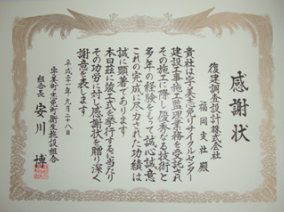 感謝状
復建調査設計株式会社
福岡支社 殿
貴社は宇美志免リサイクルセンター
建設工事施工監理業務を受託され
その施工に際し優秀なる技術と
多年の経験をもって誠心誠意
これの完成に尽力された功績は
誠に顕著であります
本日茲に竣工式を挙行するに当たり
その功労に対し感謝状を贈り深く
謝意を表します
平成二十一年九月二十八日
宇美町志免町衛生施設組合
組合長 安川 博